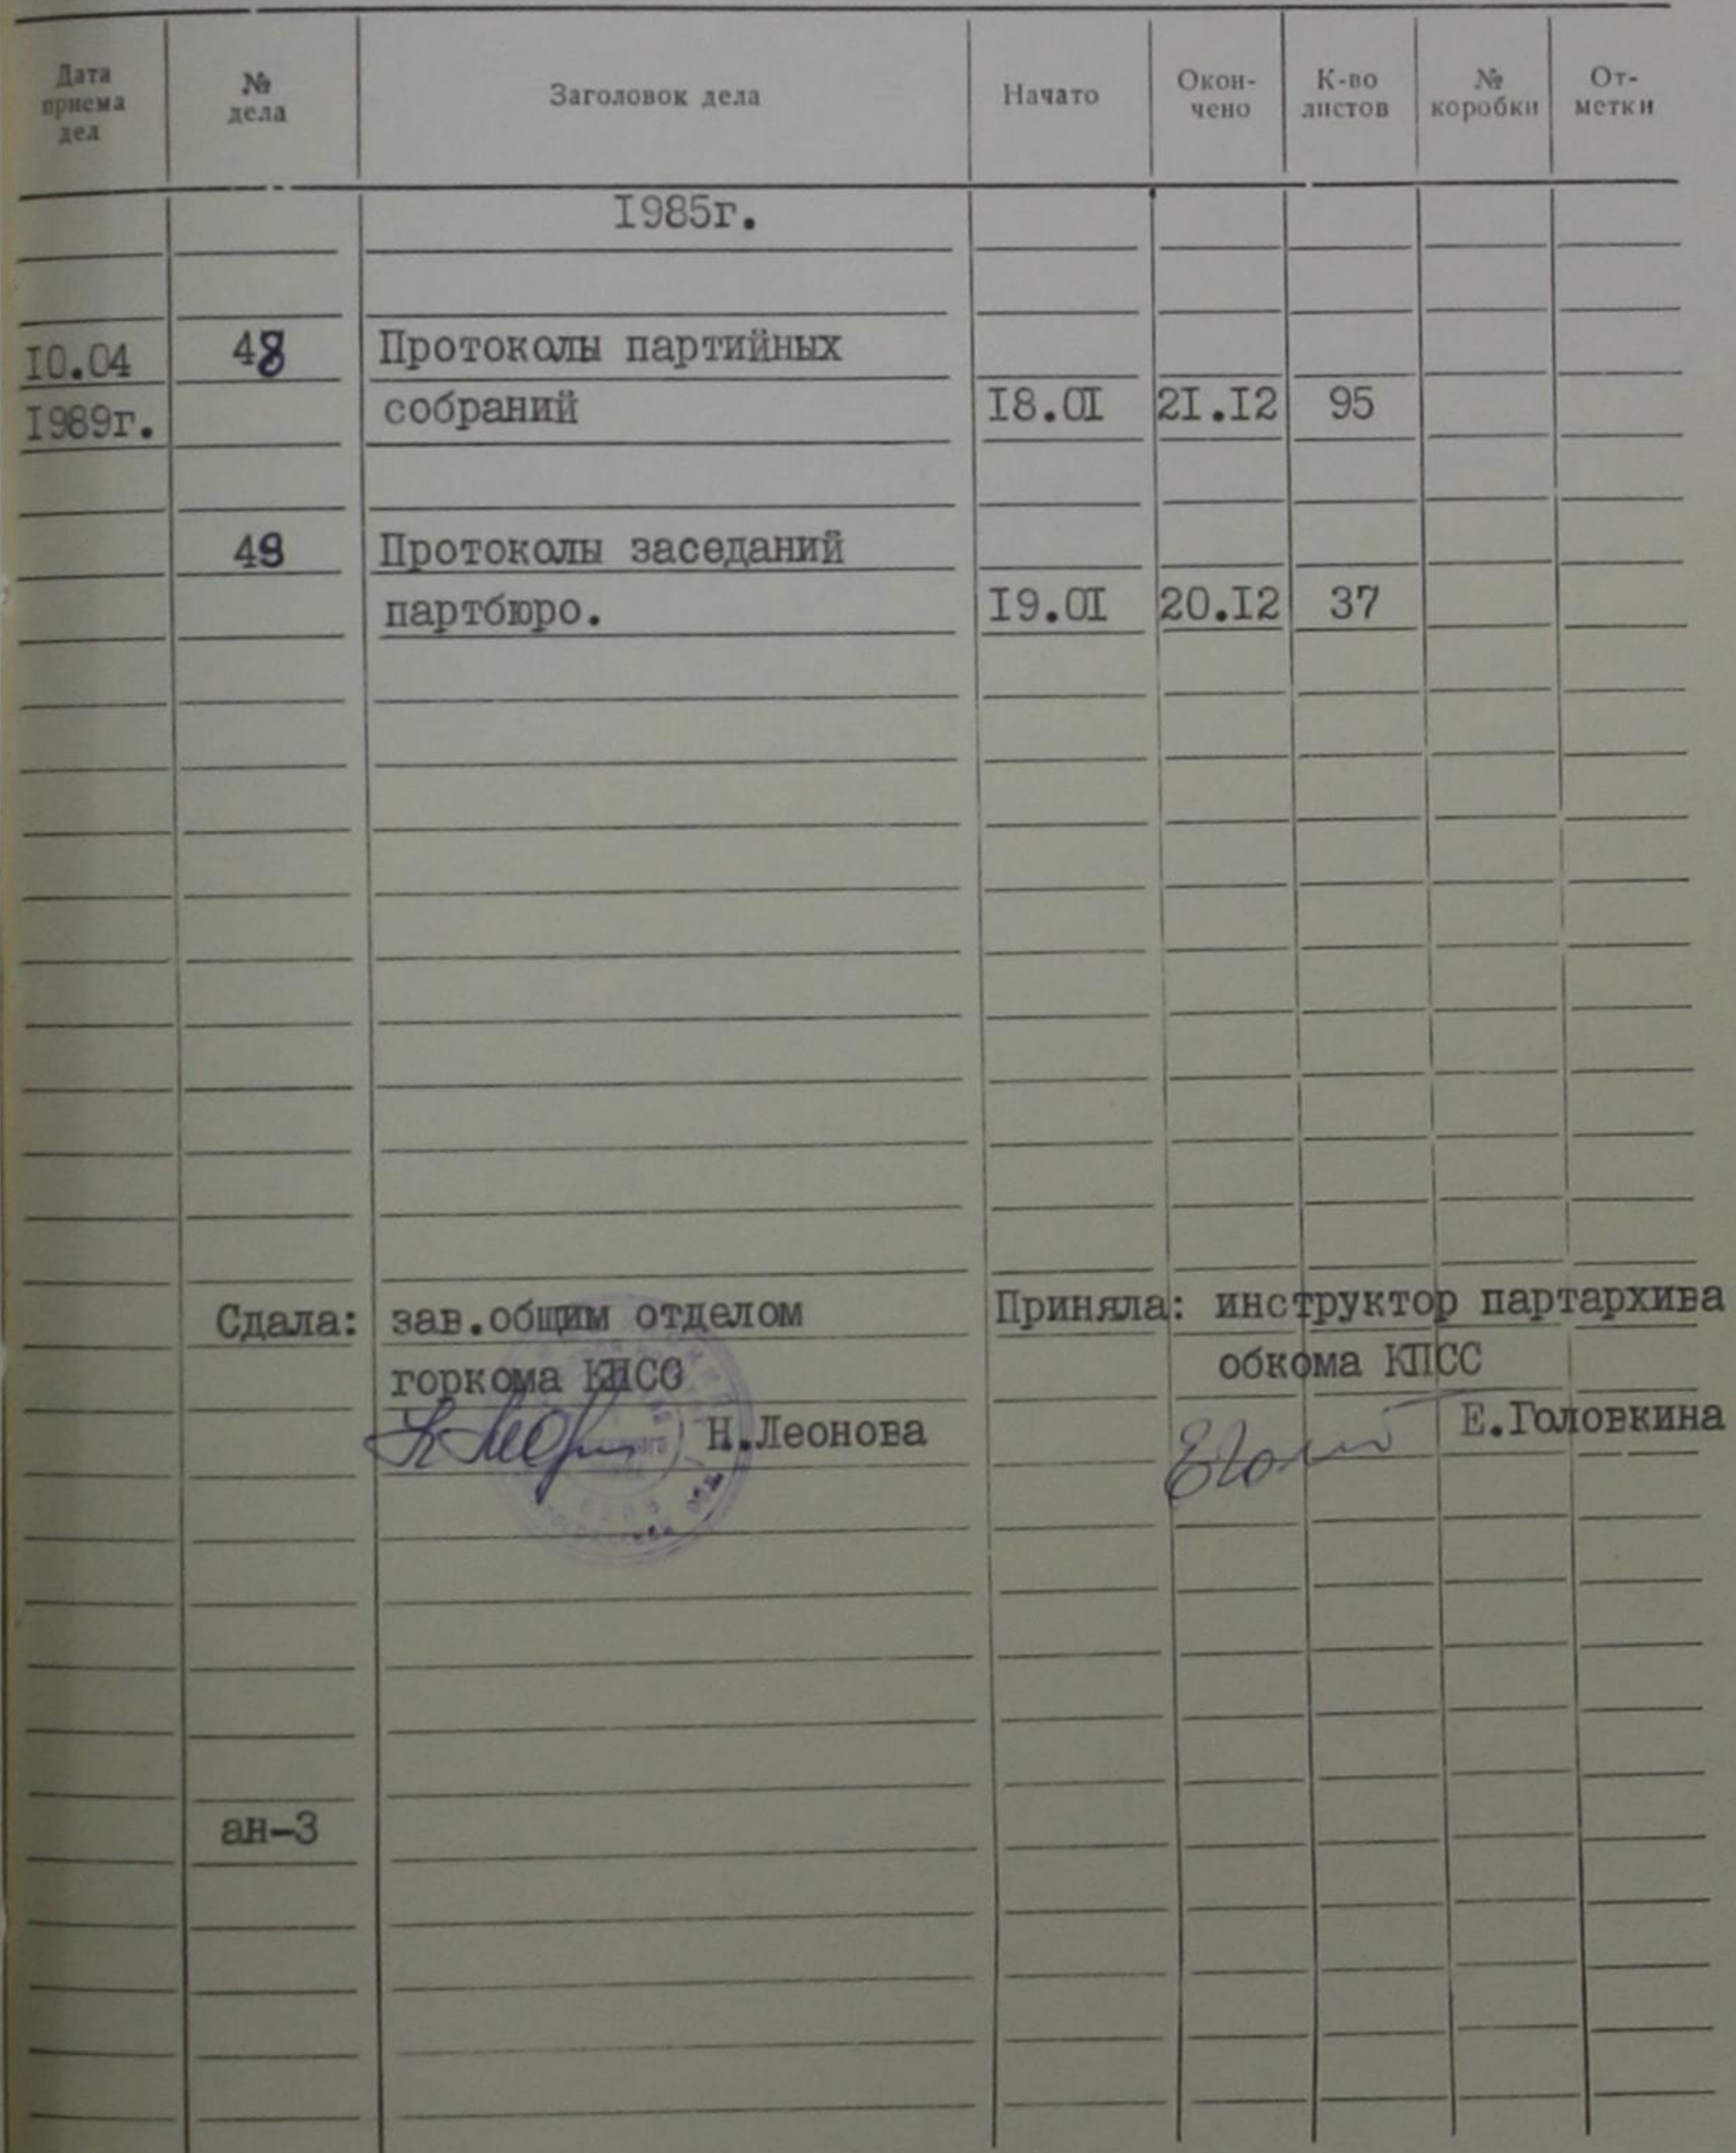 Дата приема дел
№ дела
Заголовок дела
Начато
Окон-чено
К-во листов
№ коробки
От-метки
I985г.
I0.04 48 Протоколы партийных
I989г. собраний I8.0I 2I.I2 95
49 Протоколы заседаний
партбюро. I9.0I 20.I2 37
Сдала: зав.общим отделом Приняла: инструктор партархива
горкома КПСС обкома КПСС
Н.Леонова Е.Головкина
ан-3